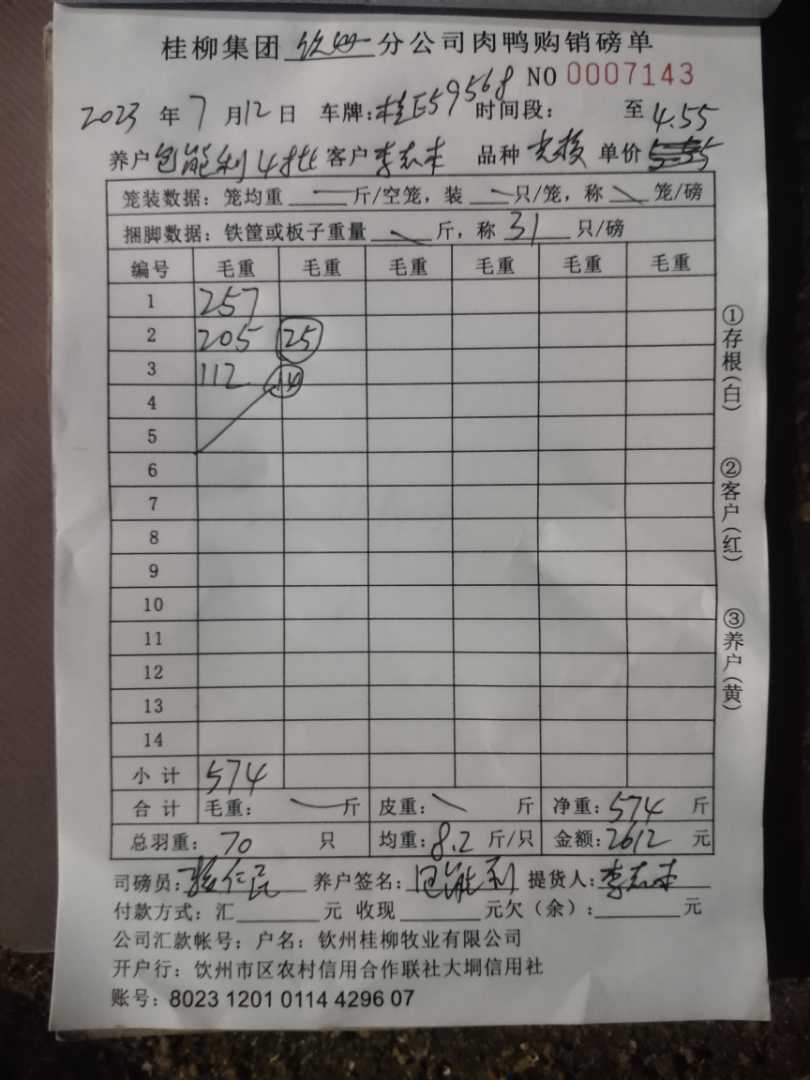 桂柳集团 钦州 分公司肉鸭购销磅单
NO 0007143
2023 年 7 月 12 日 车牌:桂E59568 时间段: 至 4.55
养户 包能利4批 客户 李志本 品种 单价
笼装数据: 笼均重 — 斤/空笼, 装 — 只/笼, 称 — 笼/磅
捆脚数据: 铁筐或板子重量 — 斤, 称 31 只/磅
编号 毛重 毛重 毛重 毛重 毛重 毛重
1 257
2 205 25
3 112 14
4
5
6
7
8
9
10
11
12
13
14
小计 574
合计 毛重: — 斤 皮重: — 斤 净重: 574 斤
总羽重: 70 只 均重: 8.2 斤/只 金额: 2612 元
司磅员: 养户签名: 包能利 提货人: 李志本
付款方式: 汇 元 收现 元欠(余): 元
公司汇款帐号: 户名: 钦州桂柳牧业有限公司
开户行: 钦州市区农村信用合作联社大垌信用社
账号: 8023 1201 0114 4296 07
①存根(白)
②客户(红)
③养户(黄)